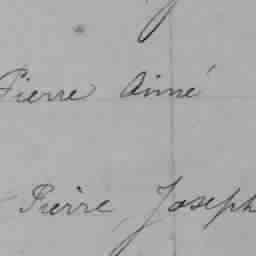 Pierre Aimé
Pierre Joseph